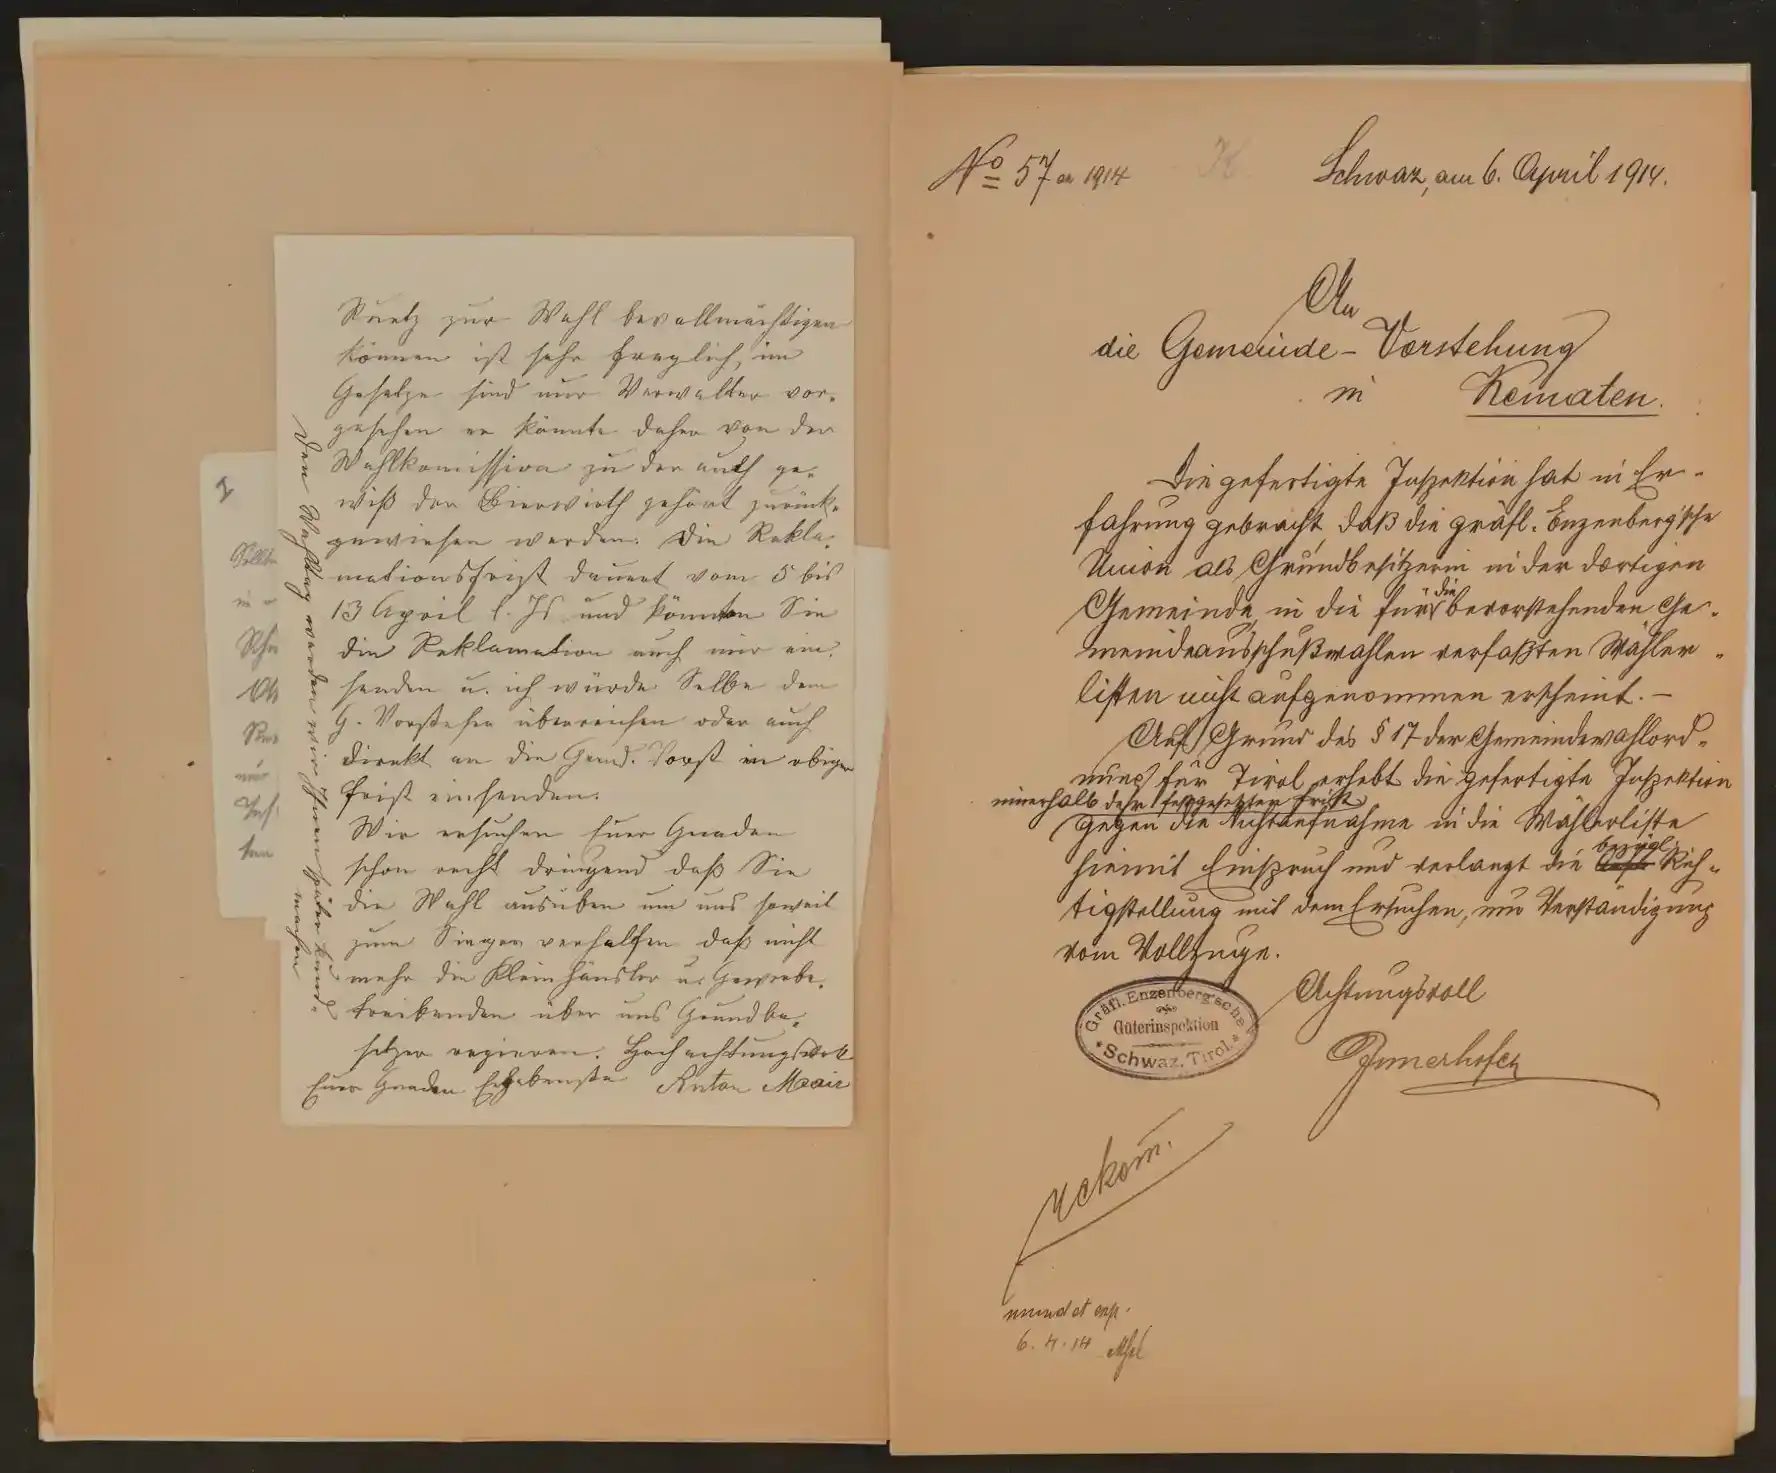 Ruetz zur Wahl bevollmächtigen
können ist sehr fraglich, im
Gesetze sind nur Verwalter vor-
gesehen er könnte daher von der
Wahlkomission zu der auch ge-
wiß der Bierwirth gehört zurück-
gewiesen werden. Die Rekla-
mationsfrist dauert vom 5 bis
13 April l. Js und könnten Sie
die Reklamation auch mir ein-
senden u. ich würde Selbe dem
G. Vorsteher überreichen oder auch
direkt an die Gemd. Vorst in obiger
Frist einsenden.
Wir ersuchen Euer Gnaden
schon recht dringend daß Sie
die Wahl ausüben um uns soweit
zum Siege verhelfen daß nicht
mehr die Kleinhäusler u. Gewerbe-
treibenden über uns Grundbe-
sitzer regieren. Hochachtungsvoll
Euer Gnaden Ergebenste Anton Mair
Den Wahltag werden wir Ihnen später kund-
machen
2
No 57 ex 1914
Schwaz, am 6. April 1914.
An
die Gemeinde-Vorstehung
in Kematen.
Die gefertigte Inspektion hat in Er-
fahrung gebracht, daß die gräfl. Enzenberg'sche
Union als Grundbesitzerin in der dortigen
Gemeinde, in die für die bevorstehenden Ge-
meindeausschußwahlen verfaßten Wähler-
listen nicht aufgenommen erscheint. –
Auf Grund des § 17 der Gemeindewahlord-
nung für Tirol erhebt die gefertigte Inspektion
innerhalb der festgesetzten Frist
gegen die Nichtaufnahme in die Wählerliste
hiemit Einspruch und verlangt die bezügl. Rich-
tigstellung mit dem Ersuchen, um Verständigung
vom Vollzuge.
Achtungsvoll
Gräfl. Enzenberg'sche
Güterinspektion
Schwaz, Tirol.
Innerhofer
rekom.
mund et exp.
6. 4. 14